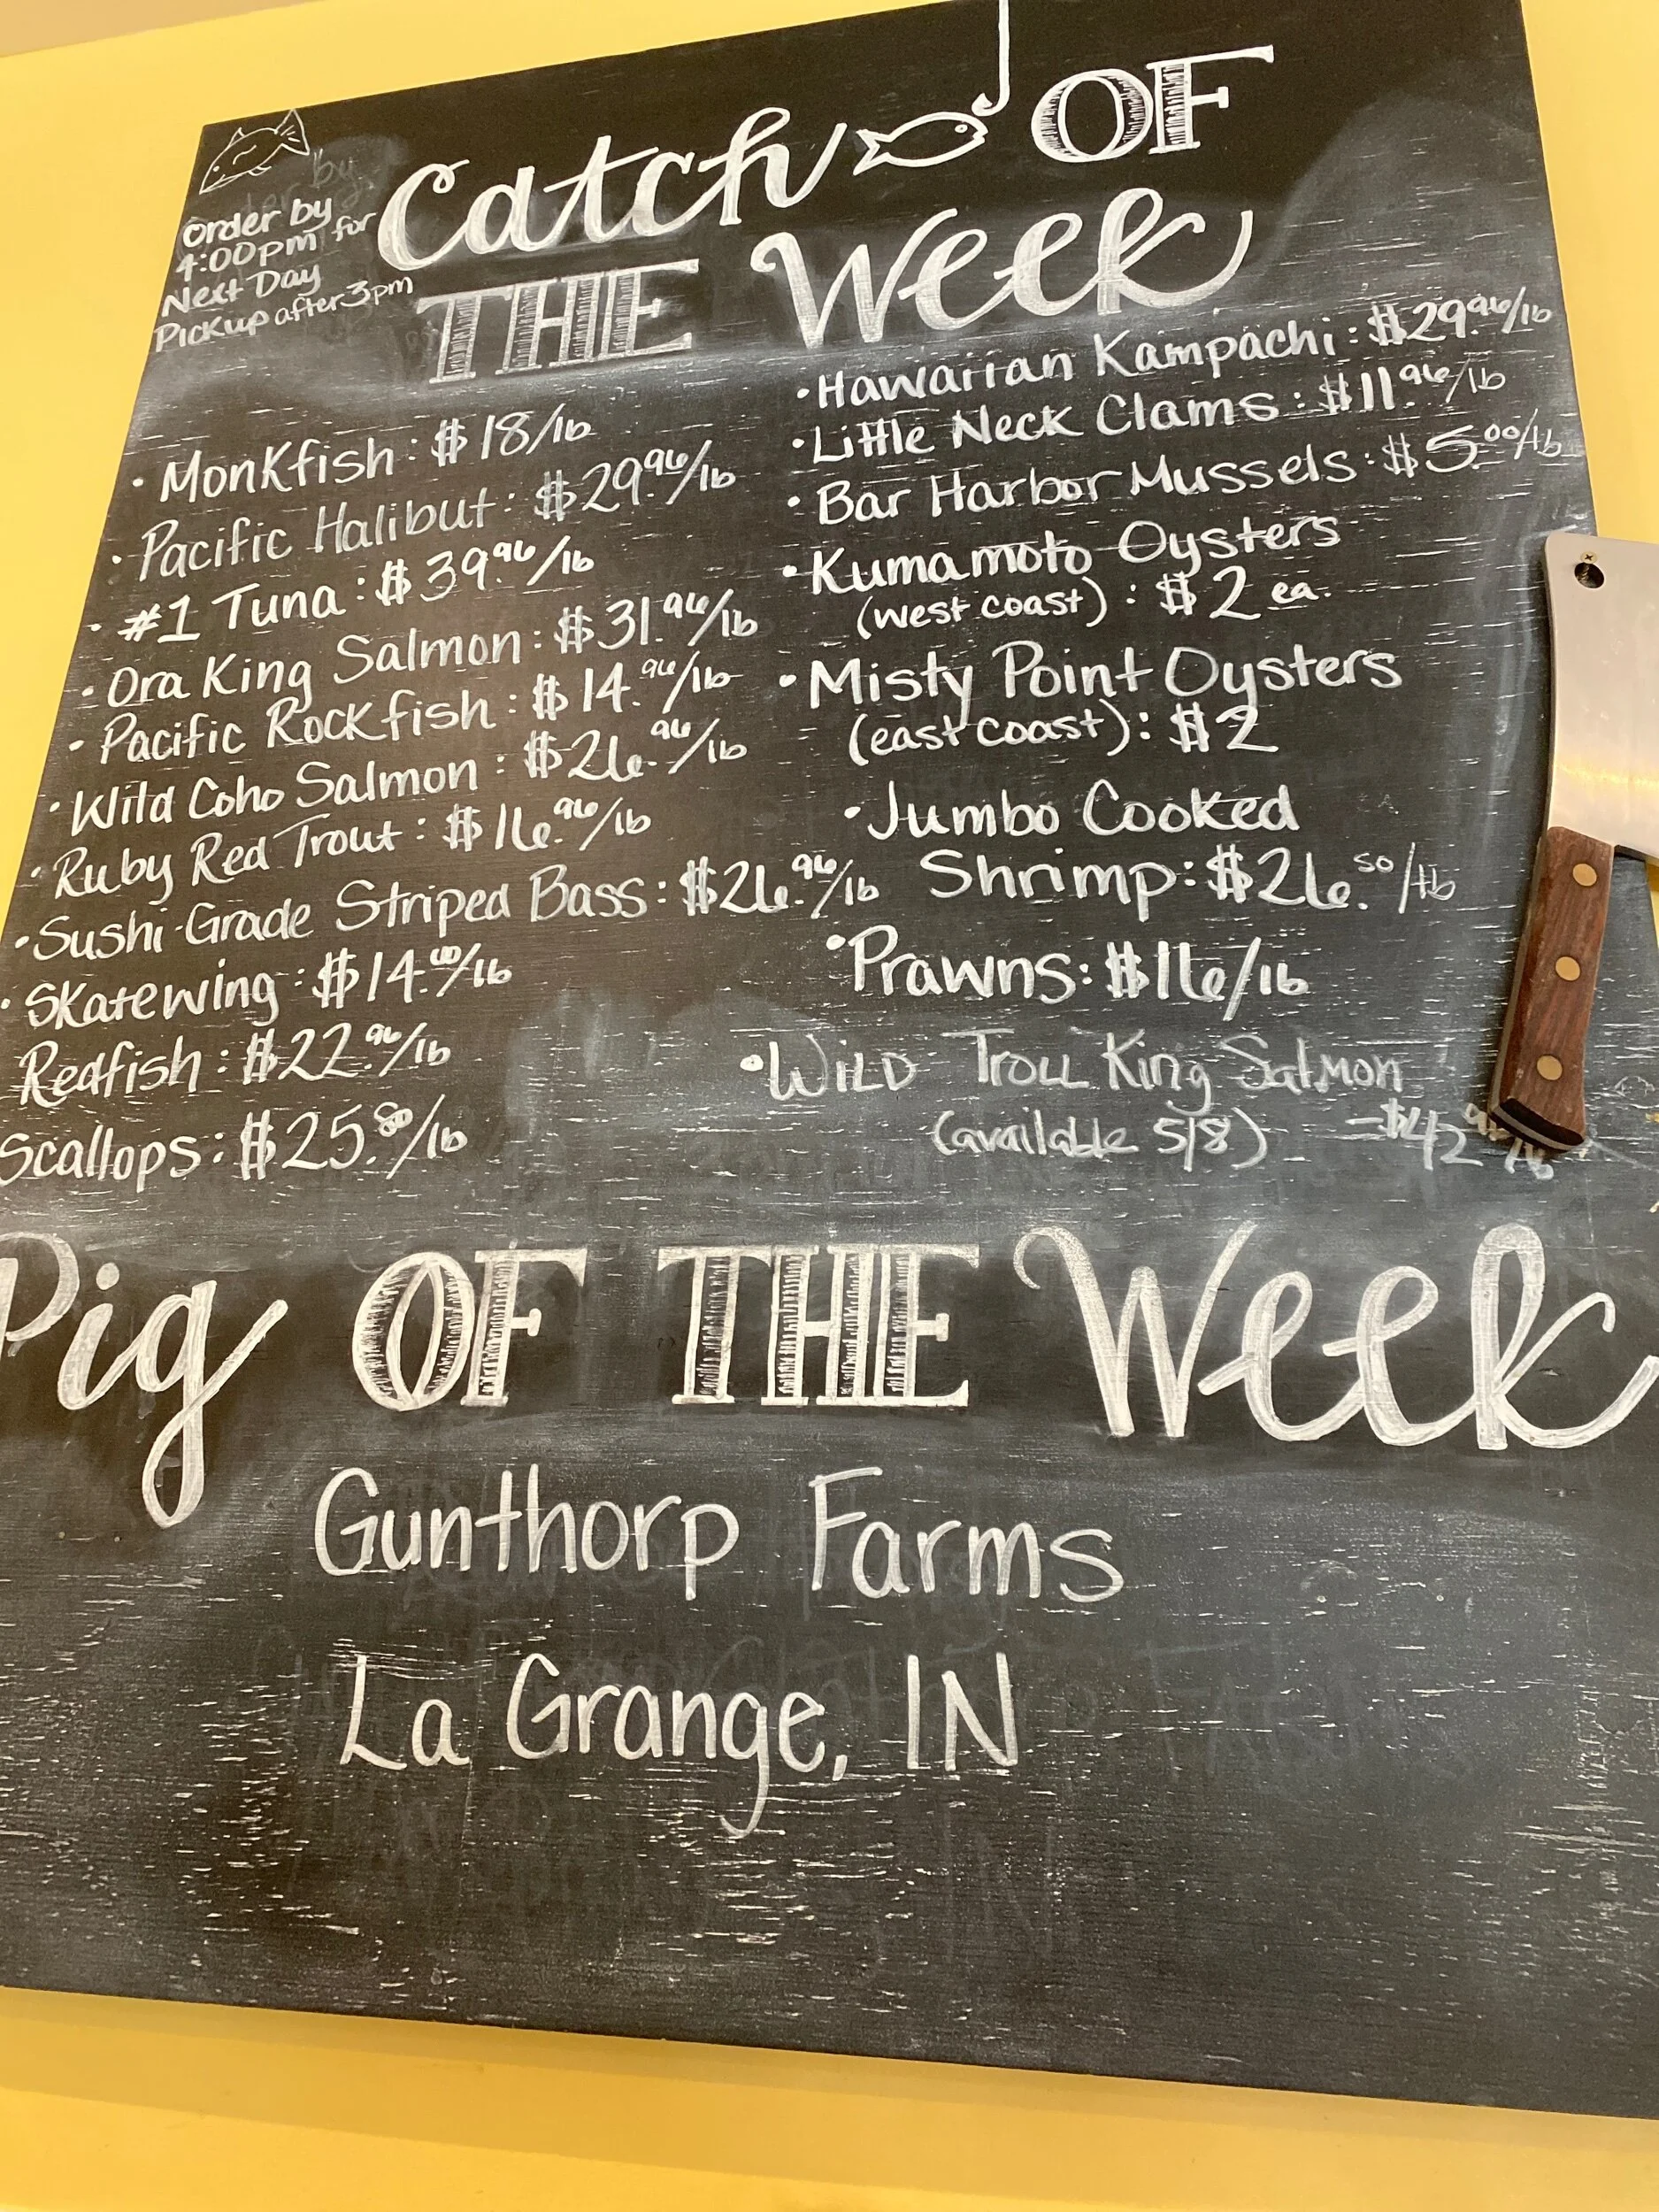 Order by
4:00pm for
Next Day
Pickup after 3pm
Catch OF
THE Week
• Monkfish: $18/lb
• Pacific Halibut: $29.96/lb
• #1 Tuna: $39.96/lb
• Ora King Salmon: $31.96/lb
• Pacific Rockfish: $14.96/lb
• Wild Coho Salmon: $26.96/lb
• Ruby Red Trout: $16.96/lb
• Sushi-Grade Striped Bass: $26.96/lb
• Skatewing: $14.00/lb
Redfish: $22.96/lb
Scallops: $25.80/lb
• Hawaiian Kampachi: $29.96/lb
• Little Neck Clams: $11.96/lb
• Bar Harbor Mussels: $5.00/lb
• Kumamoto Oysters
(west coast): $2 ea.
• Misty Point Oysters
(east coast): $2
• Jumbo Cooked
Shrimp: $26.50/lb
• Prawns: $16/lb
• WILD TROLL King Salmon
(available 5/8) - $42 lb
Pig OF THE Week
Gunthorp Farms
La Grange, IN